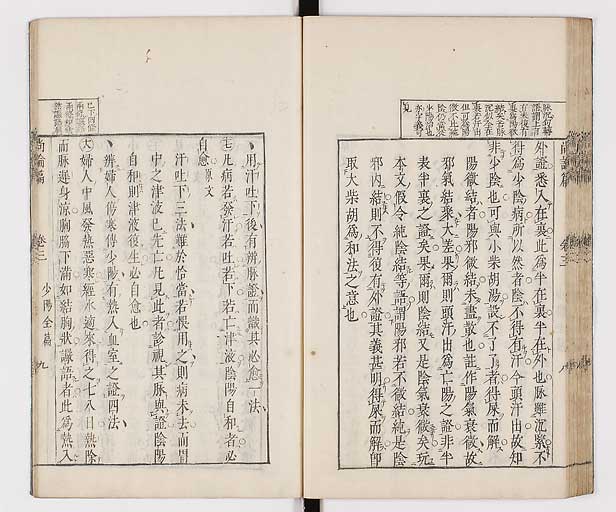 外證悉入在裏此為半在裏半在外也脉雖沉緊不
得為少陰病所以然者陰不得有汗今頭汗出故知
非少陰也可與小柴胡湯設不了了者得屎而解
陽微結者陽邪微結未盡散也註作陽氣衰微故
邪氣結聚大差果爾則頭汗出為亡陽之證非半
表半裏之證矣果爾則陰結又是陰氣衰微矣玩
本文假令純陰結等語謂陽邪若不微結純是陰
邪內結則不得復有外證其義甚明得屎而解即
取大柴胡為和法之意也
尚論篇
卷三
少陽全篇
九
用汗吐下後有辨脉證而識其必愈一法
凡病若發汗若吐若下若亡津液陰陽自和者必
自愈 原文
汗吐下三法難於恰當若悞用之則病未去而胃
中之津液已先亡凡見此者診視其脉與證陰陽
自和則津液復生必自愈也
辨婦人傷寒傳少陽有熱入血室之證四法
婦人中風發熱惡寒經水適來得之七八日熱除
而脉遲身凉胸脇下滿如結胸狀讝語者此為熱入